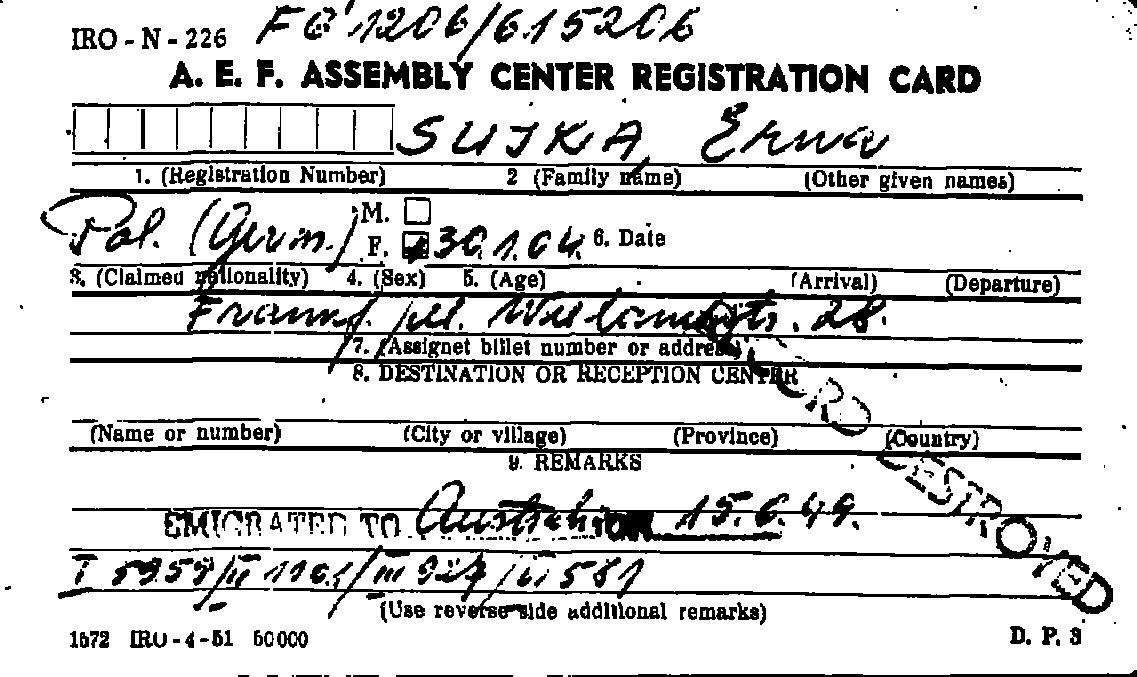 IRO - N - 226 FG 1206/615206
A. E. F. ASSEMBLY CENTER REGISTRATION CARD
SUJKA, Erna
1. (Registration Number) 2 (Family name) (Other given names)
Pol. (Germ.) M. F. 30.1.04. 6. Date
3. (Claimed nationality) 4. (Sex) 5. (Age) (Arrival) (Departure)
28.
7. (Assignet billet number or address)
8. DESTINATION OR RECEPTION CENTER
(Name or number) (City or village) (Province) (Country)
9. REMARKS
EMIGRATED TO Australia ON 15.6.49.
I 5958/II 1101/III 927/VI 581
(Use reverse side additional remarks)
1572 IRO - 4 - 51 50000 D. P. 3
CARD DESTROYED